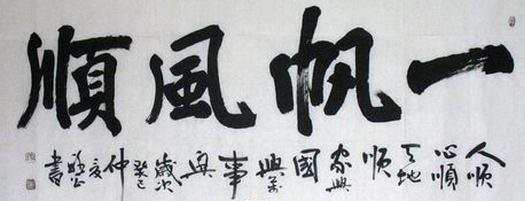 一帆風順
人順
心順
天地
順
家興
國
興萬
事
興
歲次
癸巳
仲
夏
書